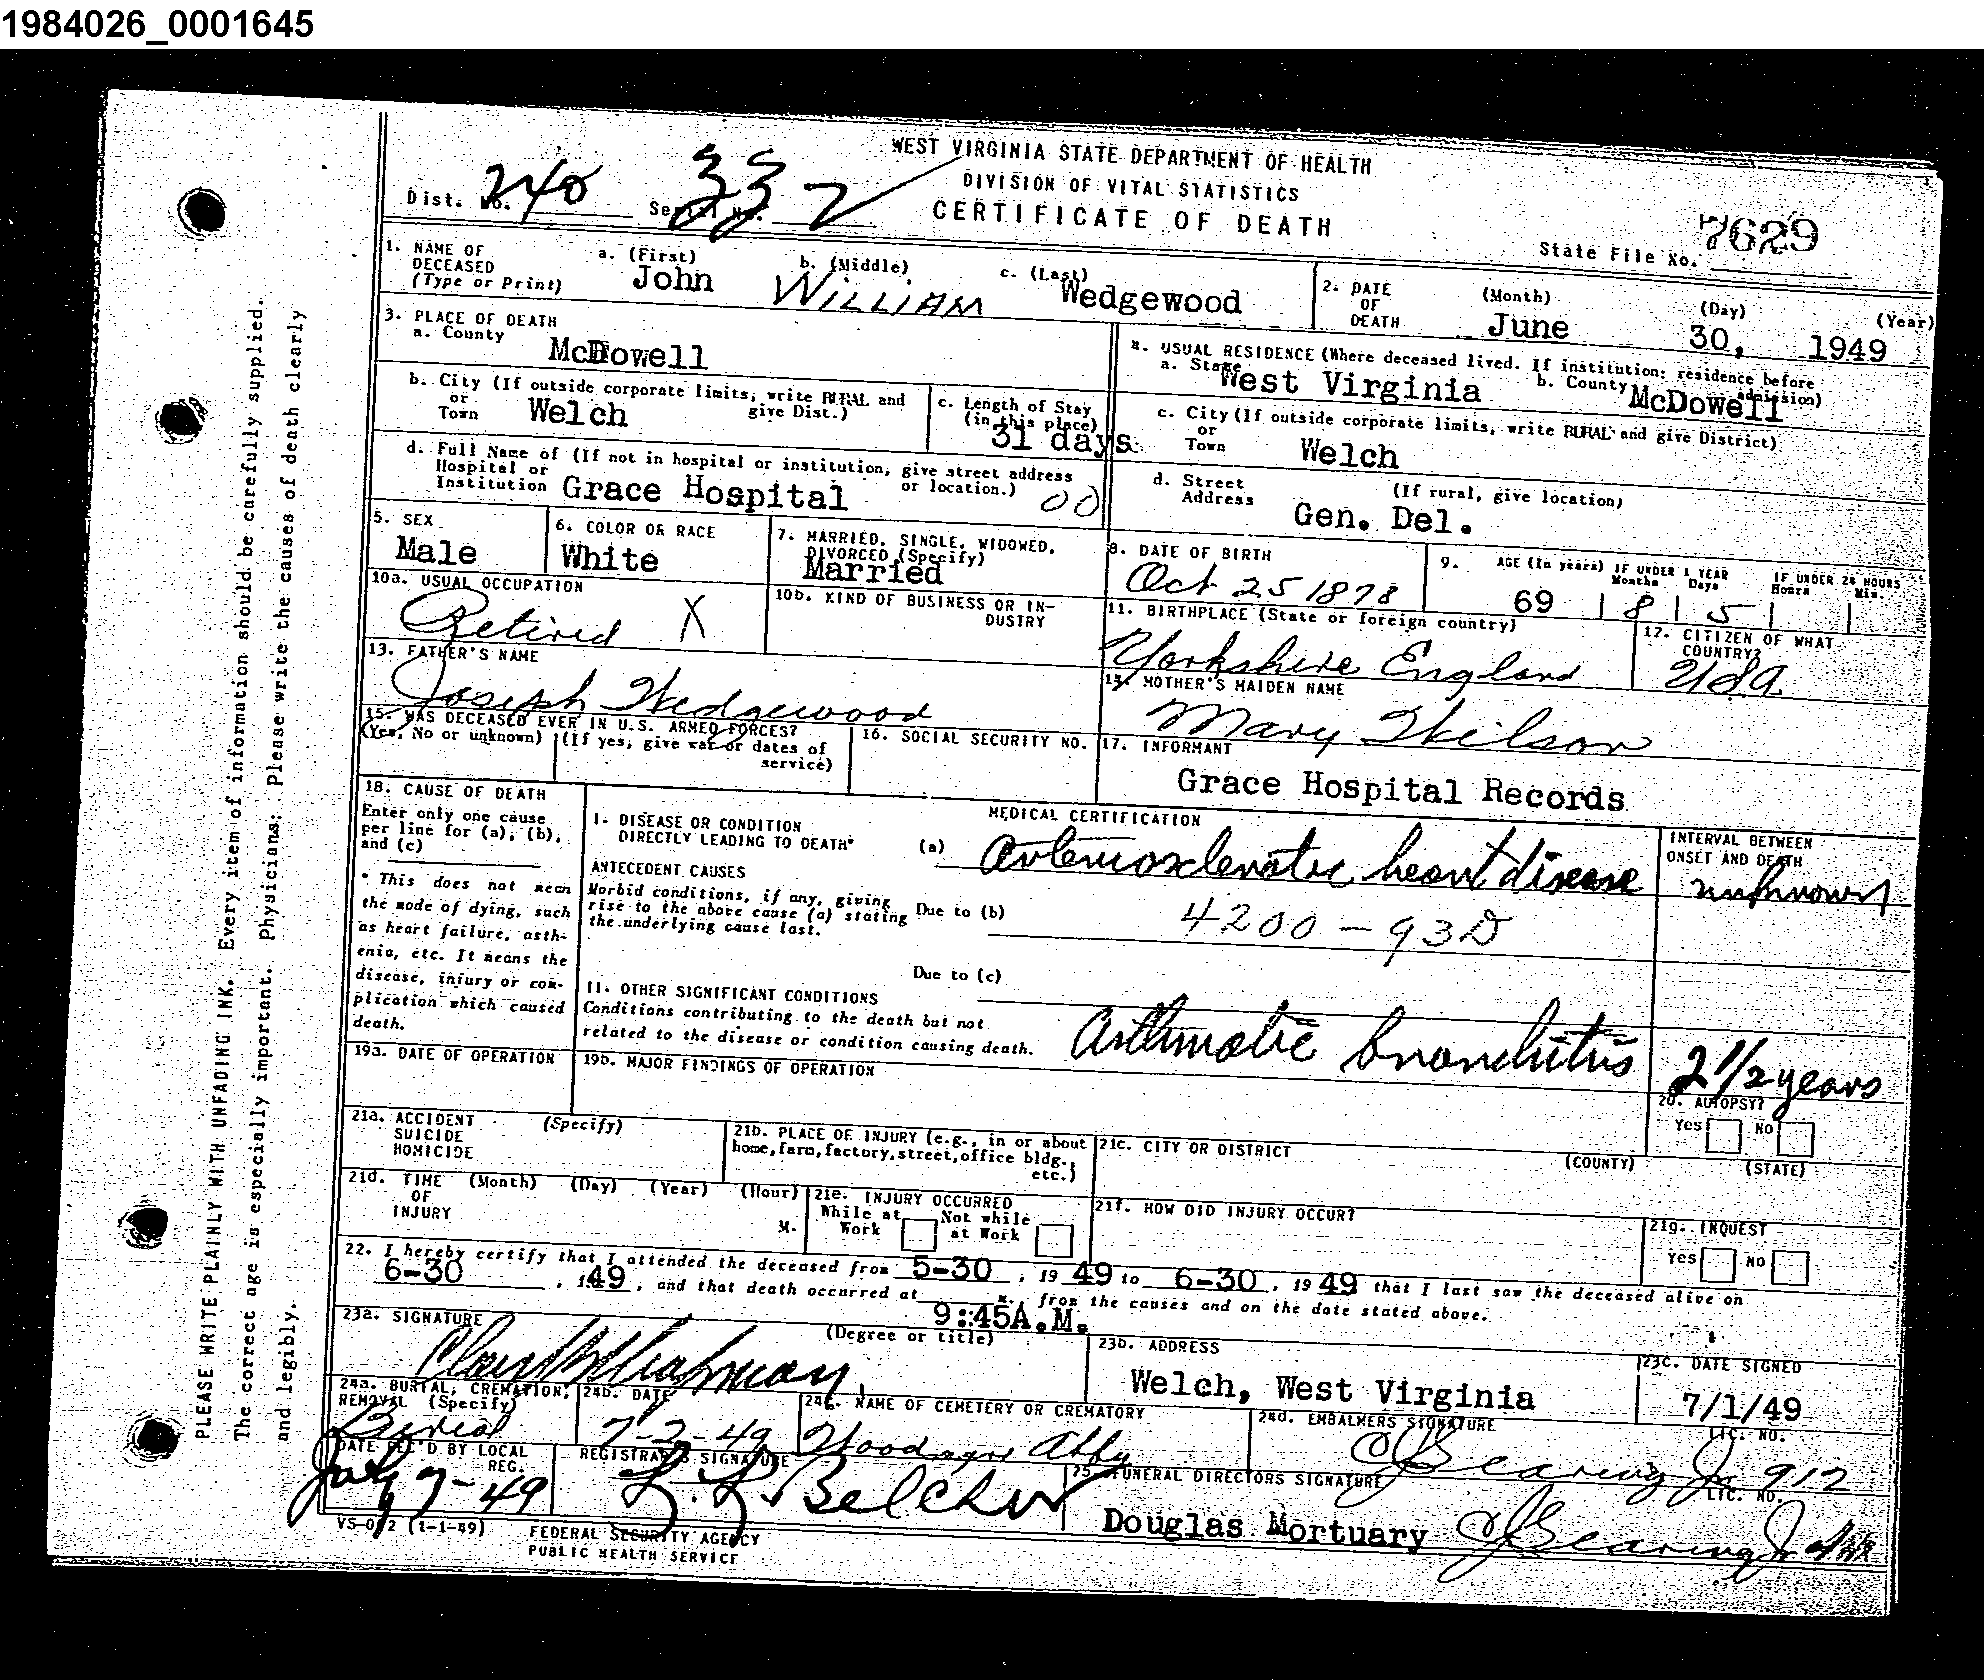 1984026_0001645
WEST VIRGINIA STATE DEPARTMENT OF HEALTH
DIVISION OF VITAL STATISTICS
CERTIFICATE OF DEATH
Dist. No. 240 Serial No. 332
State File No. 7629
1. NAME OF DECEASED (Type or Print) a. (First) John b. (Middle) WILLIAM c. (Last) Wedgewood
2. DATE OF DEATH (Month) June (Day) 30, (Year) 1949
3. PLACE OF DEATH
a. County McDowell
b. City (If outside corporate limits, write RURAL and give Dist.) or Town Welch
c. Length of Stay (in this place) 31 days
d. Full Name of (If not in hospital or institution, give street address or location.) Hospital or Institution Grace Hospital 00
4. USUAL RESIDENCE (Where deceased lived. If institution: residence before admission)
a. State West Virginia b. County McDowell
c. City (If outside corporate limits, write RURAL and give District) or Town Welch
d. Street Address (If rural, give location) Gen. Del.
5. SEX Male
6. COLOR OR RACE White
7. MARRIED, SINGLE, WIDOWED, DIVORCED (Specify) Married
8. DATE OF BIRTH Oct 25 1878
9. AGE (In years) 69 IF UNDER 1 YEAR Months 8 Days 5 IF UNDER 24 HOURS Hours Min.
10a. USUAL OCCUPATION Retired X
10b. KIND OF BUSINESS OR INDUSTRY
11. BIRTHPLACE (State or foreign country) Yorkshire England
12. CITIZEN OF WHAT COUNTRY? USA
13. FATHER'S NAME Joseph Wedgewood
14. MOTHER'S MAIDEN NAME Mary Wilson
15. WAS DECEASED EVER IN U.S. ARMED FORCES?
(Yes, No or unknown) (If yes, give war or dates of service)
16. SOCIAL SECURITY NO.
17. INFORMANT Grace Hospital Records
18. CAUSE OF DEATH
Enter only one cause per line for (a), (b), and (c)
* This does not mean the mode of dying, such as heart failure, asthenia, etc. It means the disease, injury or complication which caused death.
MEDICAL CERTIFICATION
INTERVAL BETWEEN ONSET AND DEATH
I. DISEASE OR CONDITION DIRECTLY LEADING TO DEATH* (a) Arteriosclerotic heart disease unknown
ANTECEDENT CAUSES
Morbid conditions, if any, giving rise to the above cause (a) stating the underlying cause last.
Due to (b) 4200 - 93D
Due to (c)
II. OTHER SIGNIFICANT CONDITIONS
Conditions contributing to the death but not related to the disease or condition causing death. Asthmatic bronchitis 2 1/2 years
19a. DATE OF OPERATION
19b. MAJOR FINDINGS OF OPERATION
20. AUTOPSY? Yes No
21a. ACCIDENT SUICIDE HOMICIDE (Specify)
21b. PLACE OF INJURY (e.g., in or about home, farm, factory, street, office bldg., etc.)
21c. CITY OR DISTRICT (COUNTY) (STATE)
21d. TIME OF INJURY (Month) (Day) (Year) (Hour) M.
21e. INJURY OCCURRED While at Work Not while at Work
21f. HOW DID INJURY OCCUR?
21g. INQUEST Yes No
22. I hereby certify that I attended the deceased from 5-30, 1949 to 6-30, 1949 that I last saw the deceased alive on
6-30, 149, and that death occurred at 9:45A.M. m., from the causes and on the date stated above.
23a. SIGNATURE (Degree or title)
23b. ADDRESS Welch, West Virginia
23c. DATE SIGNED 7/1/49
24a. BURIAL, CREMATION, REMOVAL (Specify) Burial
24b. DATE 7-2-49
24c. NAME OF CEMETERY OR CREMATORY
24d. EMBALMERS SIGNATURE LIC. NO. 912
DATE REC'D BY LOCAL REG. July 7-49
REGISTRARS SIGNATURE Belcher
25. FUNERAL DIRECTORS SIGNATURE LIC. NO.
Douglas Mortuary
VS-002 (1-1-49)
FEDERAL SECURITY AGENCY
PUBLIC HEALTH SERVICE
PLEASE WRITE PLAINLY WITH UNFADING INK. Every item of information should be carefully supplied.
The correct age is especially important. Physicians: Please write the causes of death clearly
and legibly.